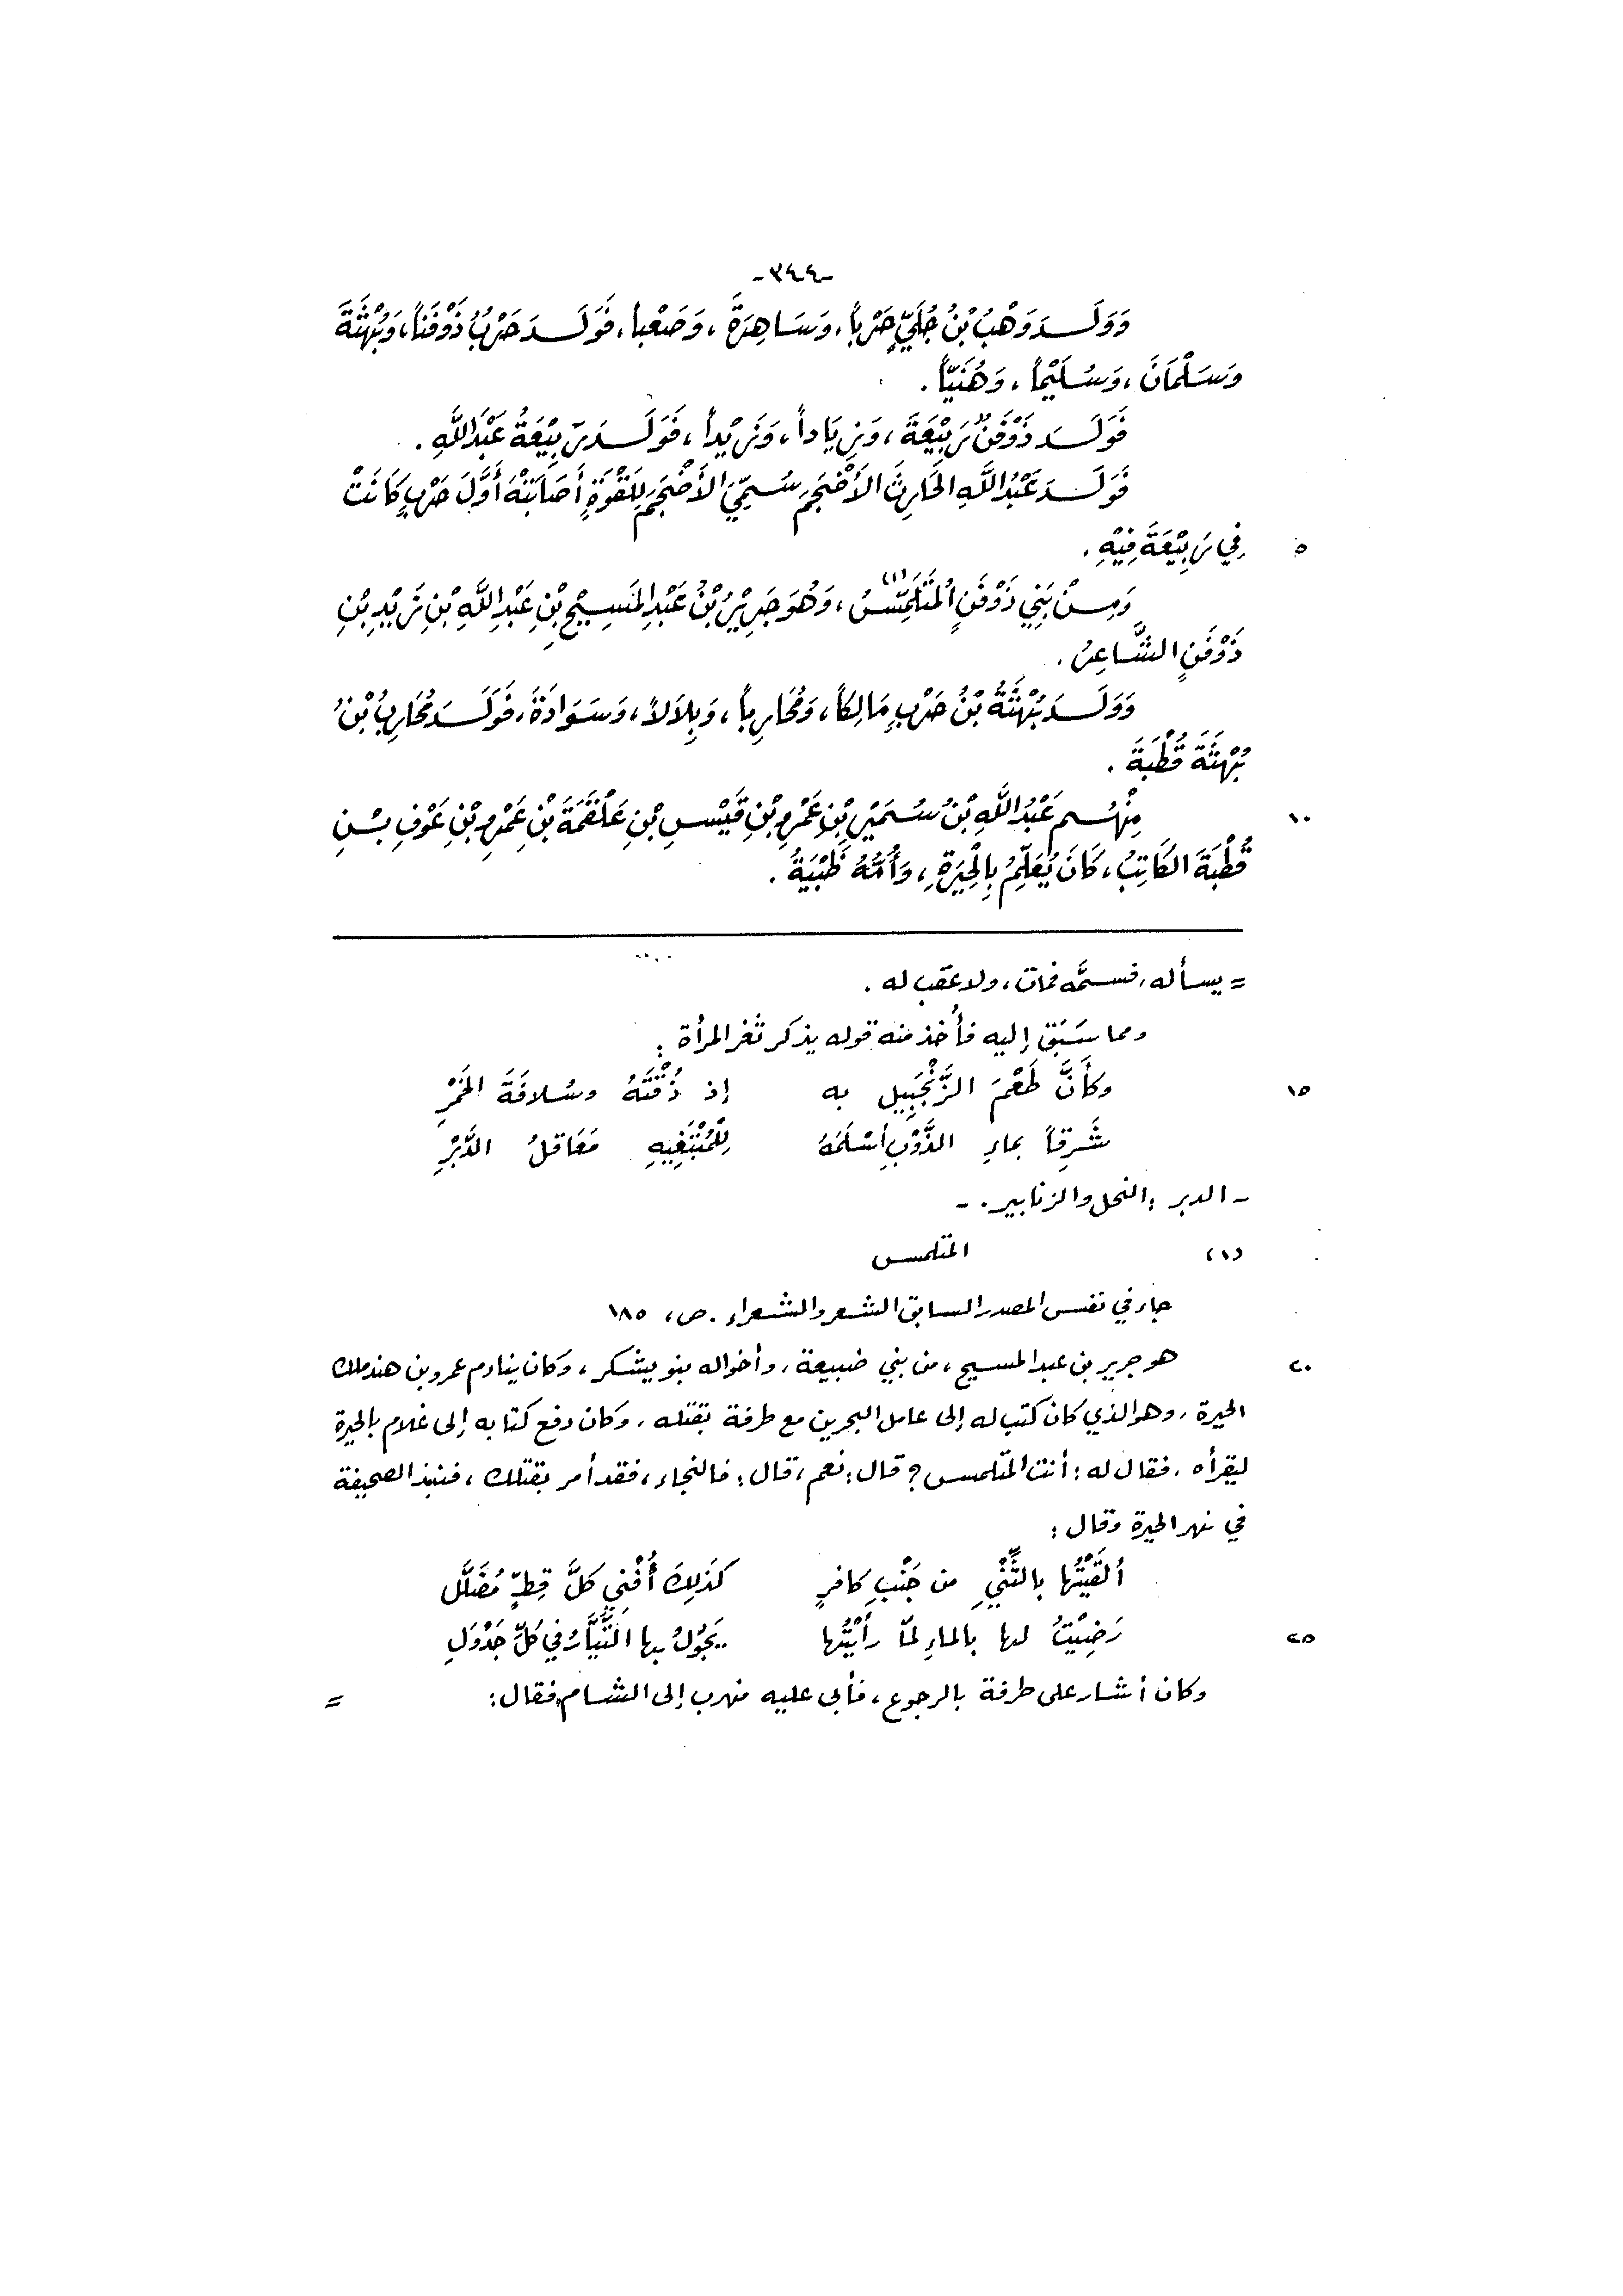 -٣٤٤-
وَوَلَدَ وَهْبُ بْنُ جُلَيٍّ حَرْباً، وَسَاهِرَةَ، وَصَعْباً، فَوَلَدَ حَرْبُ ذَوْفَناً، وَبُهْثَةَ
وَسَلْمَانَ، وَسُلَيْماً، وَهُنَيّاً.
فَوَلَدَ ذَوْفَنُ رَبِيْعَةَ، وَزِيَاداً، وَزَيْداً، فَوَلَدَ رَبِيْعَةُ عَبْدَاللَّهِ.
فَوَلَدَ عَبْدُاللَّهِ الحَارِثَ الأَضْجَمَ سُمِّيَ الأَضْجَمَ لِلَقْوَةٍ أَصَابَتْهُ أَوَّلَ حَرْبٍ كَانَتْ
٥ فِي رَبِيْعَةَ فِيْهِ.
وَمِنْ بَنِي ذَوْفَنٍ المُتَلَمِّسُ(١)، وَهُوَ جَرِيْرُ بْنُ عَبْدِ المَسِيْحِ بْنِ عَبْدِ اللَّهِ بْنِ زَيْدِ بْنِ
ذَوْفَنٍ الشَّاعِرُ.
وَوَلَدَ بُهْثَةُ بْنُ حَرْبٍ مَالِكاً، وَمُحَارِباً، وَبِلاَلاً، وَسَوَادَةَ، فَوَلَدَ مُحَارِبُ بْنُ
بُهْثَةَ قُطْبَةَ.
١٠ مِنْهُم عَبْدُ اللَّهِ بْنُ سُمَيْرِ بْنِ عَمْرِو بْنِ قَيْسِ بْنِ عَلْقَمَةَ بْنِ عَمْرِو بْنِ عَوْفِ بْنِ
قُطْبَةَ الكَاتِبُ، كَانَ يُعَلِّمُ بِالحِيْرَةِ، وَأُمُّهُ ظَبْيَةُ.
= يسأله، فسمَّه فمات، ولا عقب له.
ومما سَبَقَ إليه فأُخذ منه قوله يذكر ثغر المرأة:
١٥ وكَأَنَّ طَعْمَ الزَّنْجَبِيلِ به إذ ذُقْتَهُ وسُلافَةَ الخَمْرِ
شَرِقاً بماءِ الذَّوْبِ أَسْلَمَهُ لِلْمُبْتَغِيهِ مَعَاقلُ الدَّبْرِ
- الدبر: النحل والزنابير. -
(١) المتلمس
جاء في نفس المصدر السابق الشعر والشعراء. ص، ١٨٥
٢٠ هو جرير بن عبد المسيح، من بني ضبيعة، وأخواله بنو يشكر، وكان ينادم عمرو بن هند ملك
الحيرة، وهو الذي كان كتب له إلى عامل البحرين مع طرفة بقتله، وكان دفع كتابه إلى غلام بالحيرة
ليقرأه، فقال له: أنت المتلمس؟ قال: نعم، قال: فالنجاء، فقد أمر بقتلك، فنبذ الصحيفة
في نهر الحيرة وقال:
ألقَيْتُها بالثِّنْيِ من جَنْبِ كافرٍ كذَلِكَ أُفْني كلَّ قِطٍّ مُضَلَّل
٢٥ رَضِيْتُ لها بالماءِ لمّا رأَيْتُها يَجُوْلُ بها التَّيَّارُ في كلِّ جَدْوَلِ
وكان أشار على طرفة بالرجوع، فأبى عليه فهرب إلى الشام، فقال: =